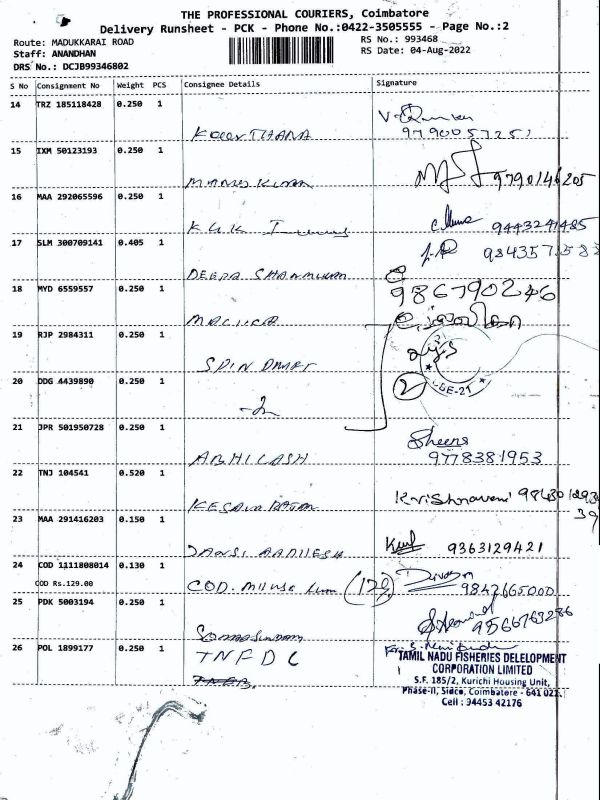 THE PROFESSIONAL COURIERS, Coimbatore
Delivery Runsheet - PCK - Phone No.:0422-3505555 - Page No.:2
Route: MADUKKARAI ROAD
RS No.: 993468
Staff: ANANDHAN
RS Date: 04-Aug-2022
DRS No.: DCJB99346802
S No Consignment No Weight PCS Consignee Details Signature
14 TRZ 185118428 0.250 1
KEERTHANA
9790057251
15 IXM 50123193 0.250 1
9790146205
16 MAA 292065596 0.250 1
K.G.K
9443241485
17 SLM 300709141 0.405 1
DEEPA SHANMUGAM
18 MYD 6559557 0.250 1
986790246
MALLIKA
19 RJP 2984311 0.250 1
SPIN
20 DDG 4439890 0.250 1
2
2
21 JPR 501950728 0.250 1
ABHILASH
Sheena
9778381953
22 TNJ 104541 0.520 1
Krishnaveni
23 MAA 291416203 0.150 1
9363129421
24 COD 1111808014 0.130 1
COD Rs.129.00
COD. (129)
9842665000
25 PDK 5003194 0.250 1
9566763286
Somasundaram
26 POL 1899177 0.250 1
TNFDC
TAMIL NADU FISHERIES DELELOPMENT
CORPORATION LIMITED
S.F. 185/2, Kurichi Housing Unit,
Phase-II, Sidco, Coimbatore - 641 021.
Cell : 94453 42176